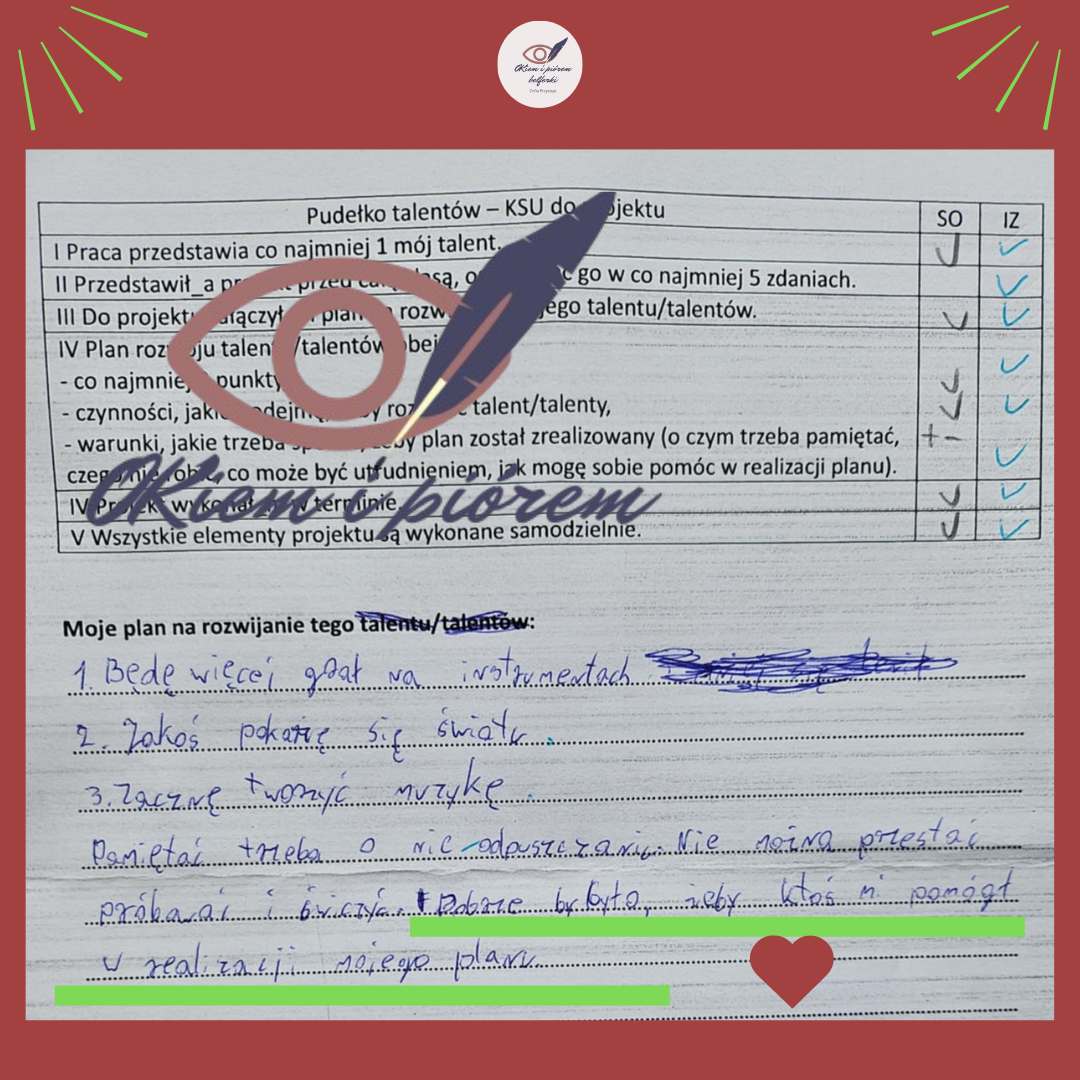 OKiem i piórem
belferki
Zofia Przyrwaj
Pudełko talentów – KSU do jektu SO IZ
I Praca przedstawia co najmniej 1 mój talent.
II Przedstawił_a go w co najmniej 5 zdaniach.
III Do projektu plan talentu/talentów.
IV Plan rozwoju talentu/talentów
- co najmniej punkty
- czynności, talent/talenty,
- warunki, jakie trzeba plan został zrealizowany (o czym trzeba pamiętać, + -
czego nie robić, co może być utrudnieniem, jak mogę sobie pomóc w realizacji planu).
IV Projekt wykonałam w terminie.
V Wszystkie elementy projektu są wykonane samodzielnie.
OKiem i piórem
Moje plan na rozwijanie tego talentu/talentów:
1. Będę więcej grał na instrumentach.
2. Jakoś pokarzę się światu.
3. Zacznę tworzyć muzykę.
Pamiętać trzeba o nie odpuszczaniu. Nie można przestać
próbować i ćwiczyć. Dobrze by było, żeby ktoś mi pomógł
w realizacji mojego planu.